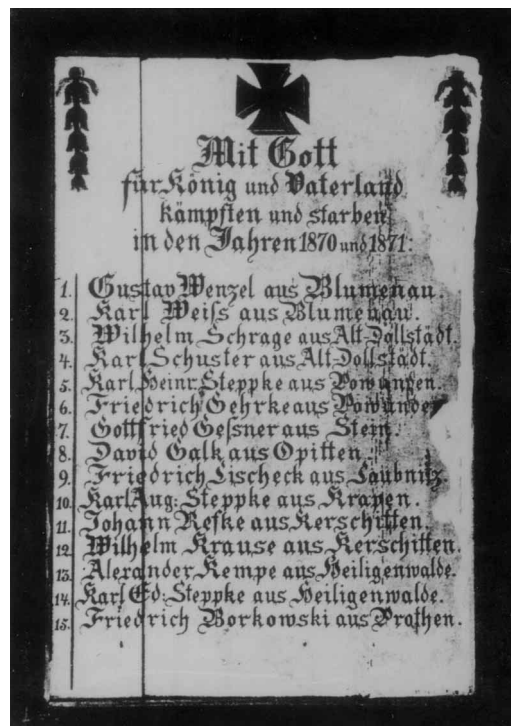 Mit Gott
für König und Vaterland
kämpften und starben
in den Jahren 1870 und 1871:
1. Gustav Wenzel aus Blumenau.
2. Karl Weiss aus Blumenau.
3. Wilhelm Schrage aus Alt-Dollstädt.
4. Karl Schuster aus Alt-Dollstädt.
5. Karl Heinr. Steppke aus Powunden.
6. Friedrich Gehrke aus Powunden
7. Gottfried Gessner aus Stein.
8. David Galk aus Opitten.
9. Friedrich Lischeck aus Taubnitz
10. Karl Aug: Steppke aus Krapen.
11. Johann Refke aus Kerschitten.
12. Wilhelm Krause aus Kerschitten.
13. Alexander Kempe aus Heiligenwalde.
14. Karl Ed: Steppke aus Heiligenwalde.
15. Friedrich Borkowski aus Prothen.